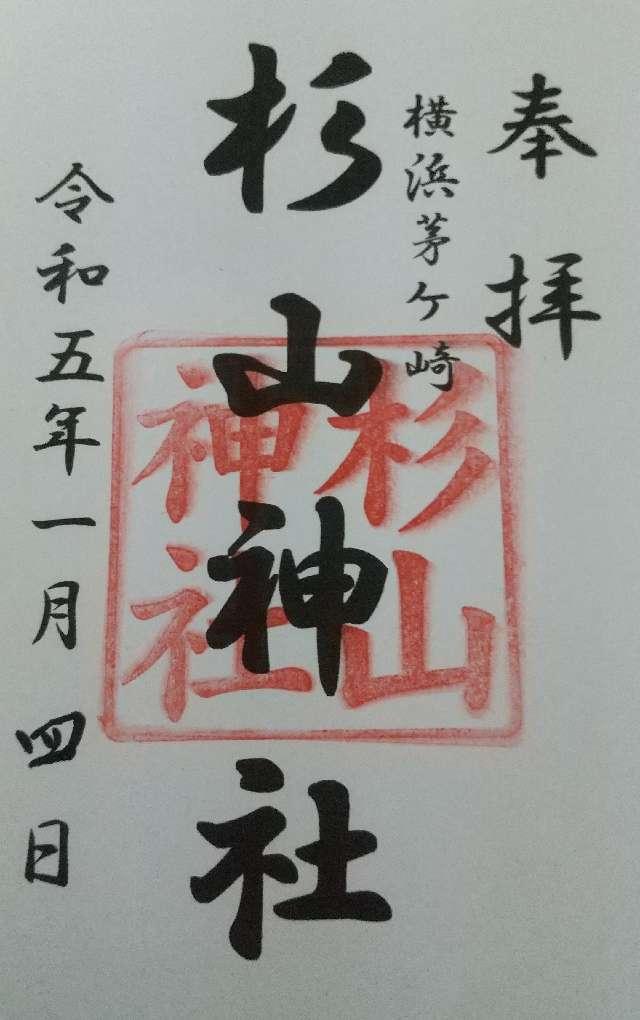 奉拝
横浜茅ケ崎
杉山神社
杉山
神社
令和五年一月四日